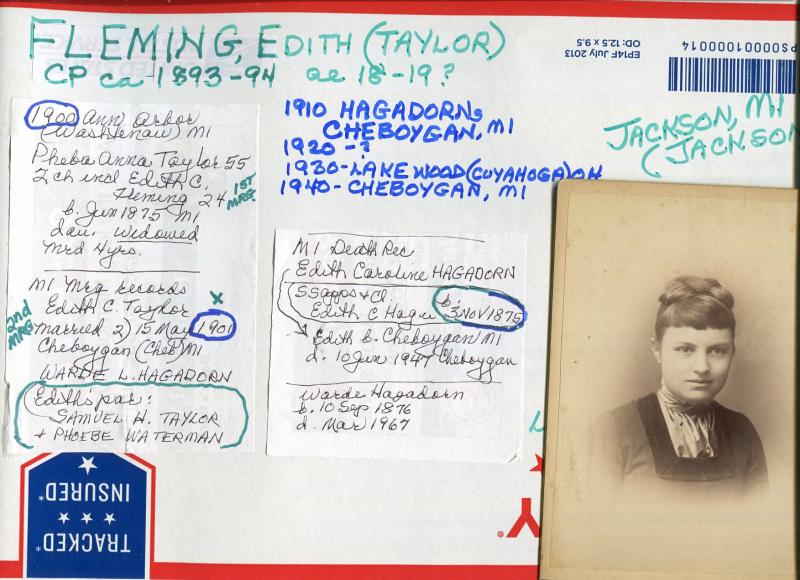 FLEMING, EDITH (TAYLOR)
CP ca 1893-94 ae 18-19?
EP14F July 2013
OD: 12.5 x 9.5
PS00001000014
1900 Ann Arbor
(Washtenaw) MI
Pheba Anna Taylor 55
2 ch incl Edith C.
Fleming 24
1ST MRG.
b. Jun 1875 MI
dau. Widowed
Mrd 4 yrs.
MI Mrg records
Edith C. Taylor x
2nd MRG
married 2) 15 May 1901
Cheboygan (Cheb) MI
WARDE L. HAGADORN
Edith's par:
SAMUEL H. TAYLOR
+ PHOEBE WATERMAN
1910 HAGADORN,
CHEBOYGAN, MI
1920 - ?
1930 - LAKEWOOD (CUYAHOGA) OH
1940 - CHEBOYGAN, MI
JACKSON, MI
(JACKSON
MI Death Rec
Edith Caroline HAGADORN
SS apps + Cl. b.
Edith C Hagu 3 NOV 1875
Edith b. Cheboygan MI
d. 10 Jun 1947 Cheboygan
Warde Hagadorn
b. 10 Sep 1876
d. Mar 1967
TRACKED
INSURED*